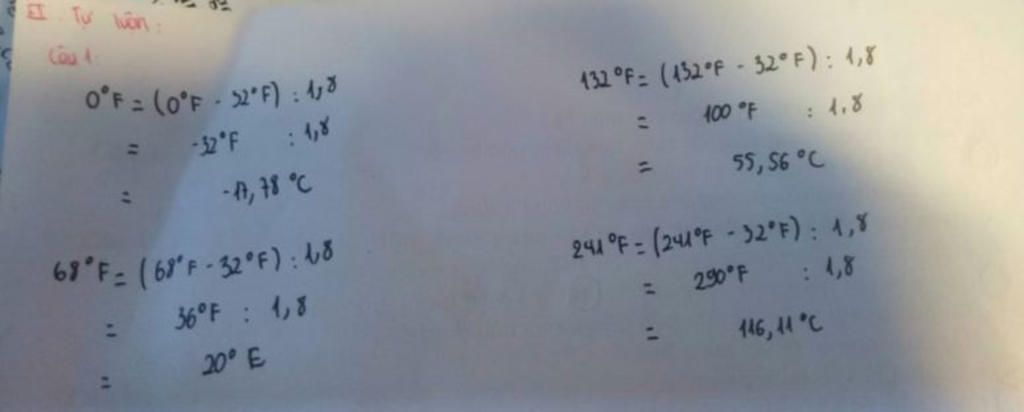 II. Tự luận:
Câu 1:
0°F = (0°F - 32°F) : 1,8
= -32°F : 1,8
= -17,78 °C
68°F = (68°F - 32°F) : 1,8
= 36°F : 1,8
= 20° E
132°F = (132°F - 32°F) : 1,8
= 100 °F : 1.8
= 55,56 °C
241°F = (241°F - 32°F) : 1,8
= 290°F : 1,8
= 116,11 °C